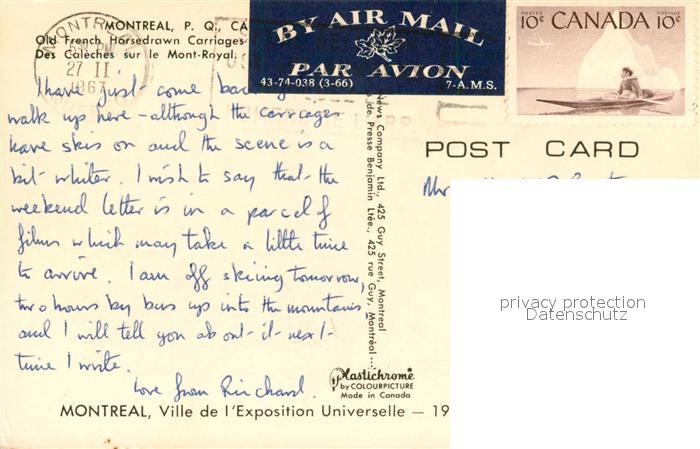 MONTREAL
27 II
1967
MONTREAL, P. Q., CA
Old French Horsedrawn Carriages
Des Calèches sur le Mont-Royal.
BY AIR MAIL
PAR AVION
43-74-038 (3-66) 7-A.M.S.
POSTES POSTAGE
10¢ CANADA 10¢
I have just come back
walk up here - although the carriages
have skis on and the scene is a
bit whiter. I wish to say that the
weekend letter is in a parcel of
films which may take a little time
to arrive. I am off skiing tomorrow,
two hours by bus up into the mountains,
and I will tell you about it next
time I write.
Love from Richard.
News Company Ltd., 425 Guy Street, Montreal
de Presse Benjamin Ltée., 425 rue Guy, Montréal
POST CARD
Plastichrome
by COLOURPICTURE
Made in Canada
MONTREAL, Ville de l'Exposition Universelle — 19
privacy protection
Datenschutz